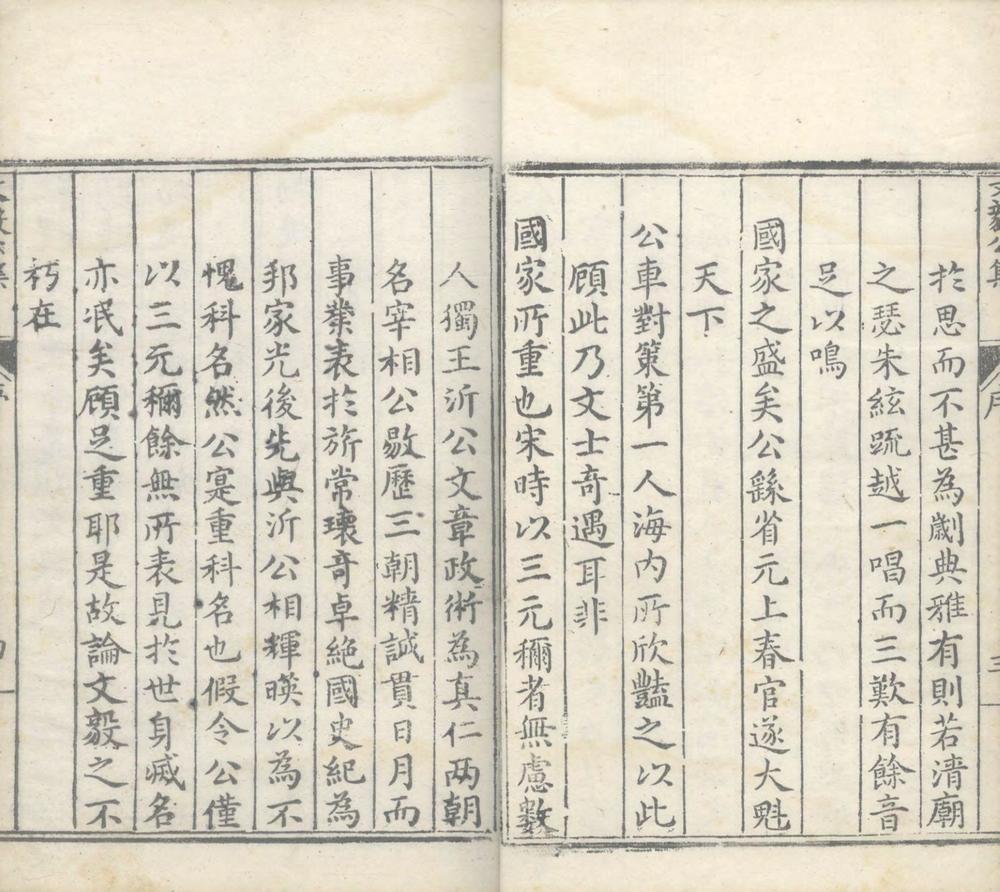 文毅公集
序
三
於思而不甚為劌典雅有則若清廟
之瑟朱絃疏越一唱而三歎有餘音
足以鳴
國家之盛矣公繇省元上春官遂大魁
天下
公車對策第一人海内所欣豔之以此
顧此乃文士奇遇耳非
國家所重也宋時以三元稱者無慮數
人獨王沂公文章政術為真仁两朝
名宰相公敭歷三朝精誠貫日月而
事業表於旂常瓌奇卓絶國史紀為
邦家光後先與沂公相輝暎以為不
愧科名然公寔重科名也假令公僅
以三元稱餘無所表見於世身滅名
亦泯矣顧足重耶是故論文毅之不
朽在